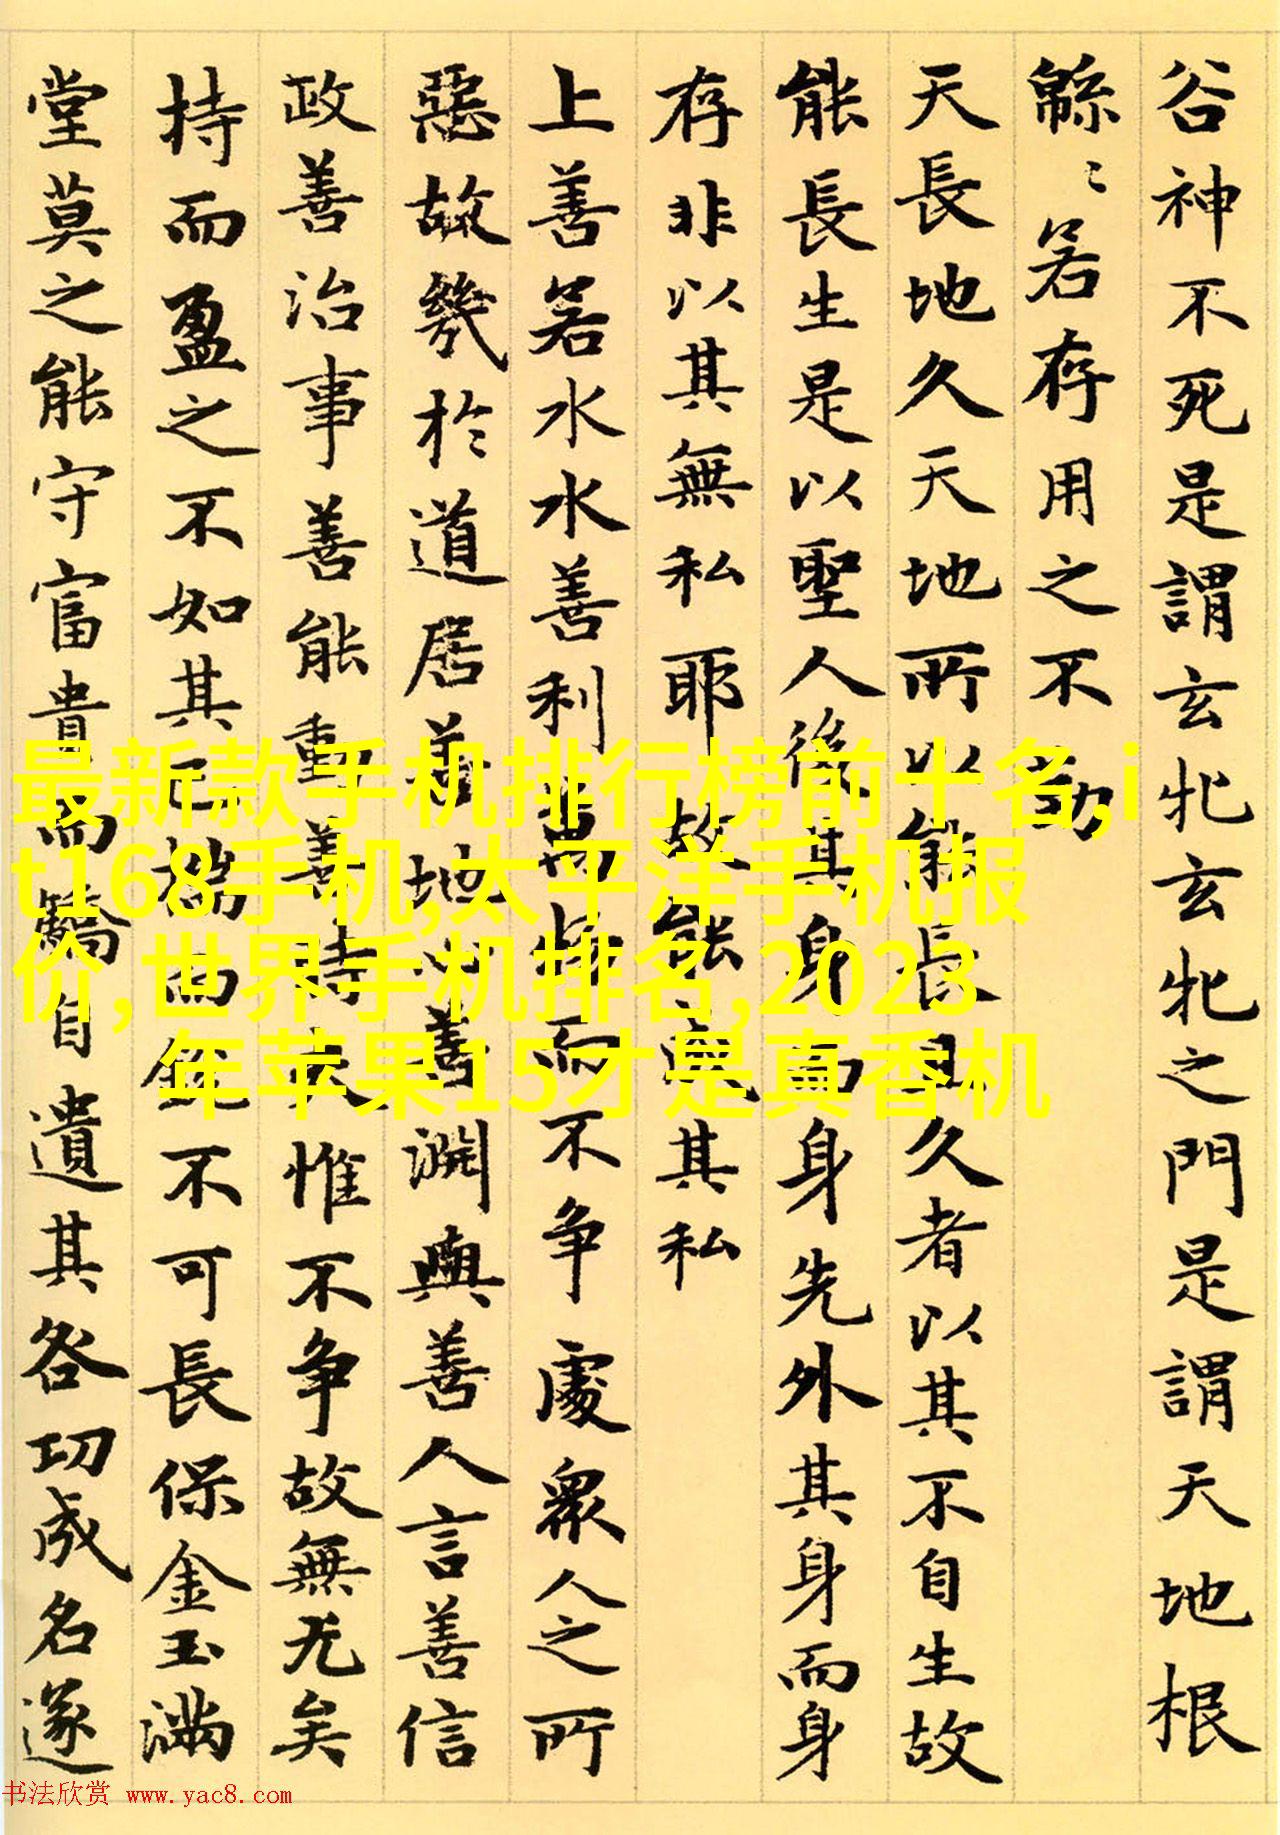 谷神不死是謂玄牝玄牝之門是謂天地根
緜〻若存用之不勤
天長地久天地所以能長且久者以其不自生故
能長生是以聖人後其身而身先外其身而身
存非以其無私耶故能成其私
上善若水水善利萬物而不争處衆人之所
惡故幾於道居善地心善淵與善人言善信
政善治事善能動善時夫惟不争故無尤矣
持而盈之不如其已揣而銳不可長保金玉滿
堂莫之能守富貴而驕自遺其咎功成名遂
最新款手机排行榜前十名,i
t168手机,太平洋手机报
价,世界手机排名,2023
年苹果15才是真香机
书法欣赏 www.yac8.com